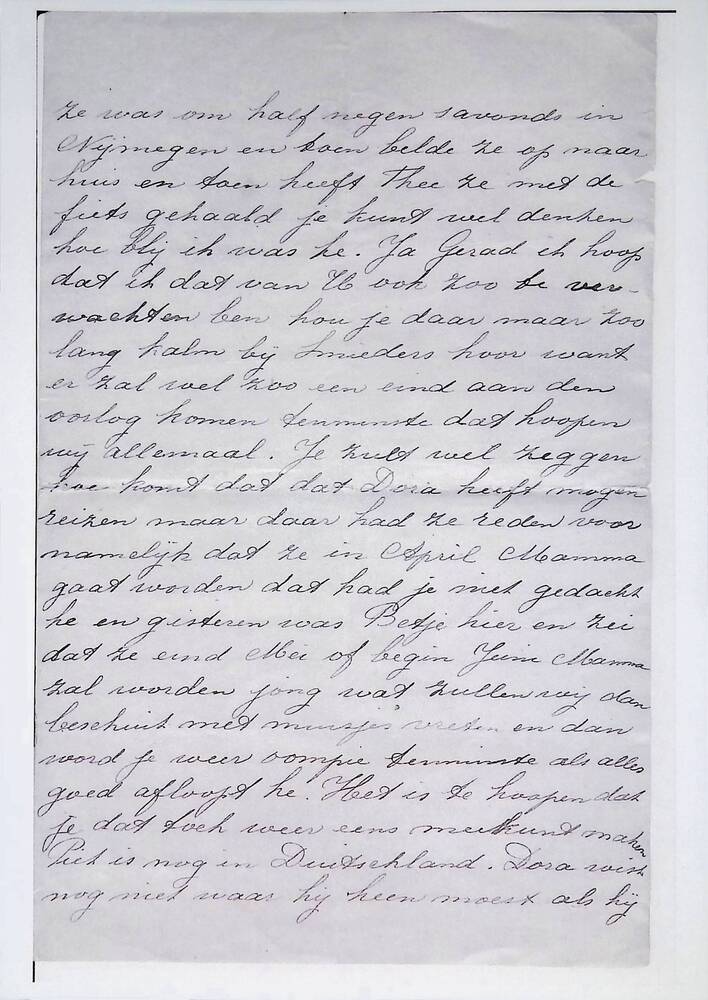 ze was om half negen savonds in
Nijmegen en toen belde ze op naar
huis en toen heeft Thee ze met de
fiets gehaald je kunt wel denken
hoe blij ik was he. Ja Gerad ik hoop
dat ik dat van U ook zoo te ver-
wachten ben hou je daar maar zoo
lang kalm bij Smieders hoor want
er zal wel zoo een eind aan den
oorlog komen tenminste dat hoopen
wij allemaal. Je zult wel zeggen
hoe komt dat dat Dora heeft mogen
reizen maar daar had ze reden voor
namelijk dat ze in April Mamma
gaat worden dat had je niet gedacht
he en gisteren was Betje hier en zei
dat ze eind Mei of begin Juni Mamma
zal worden jong wat zullen wij dan
beschuit met muisjes vreten en dan
word je weer oompie tenminste als alles
goed afloopt he. Het is te hoopen dat
je dat toch weer eens mee kunt maken
Piet is nog in Duitschland. Dora wist
nog niet waar hij heen moest als hij